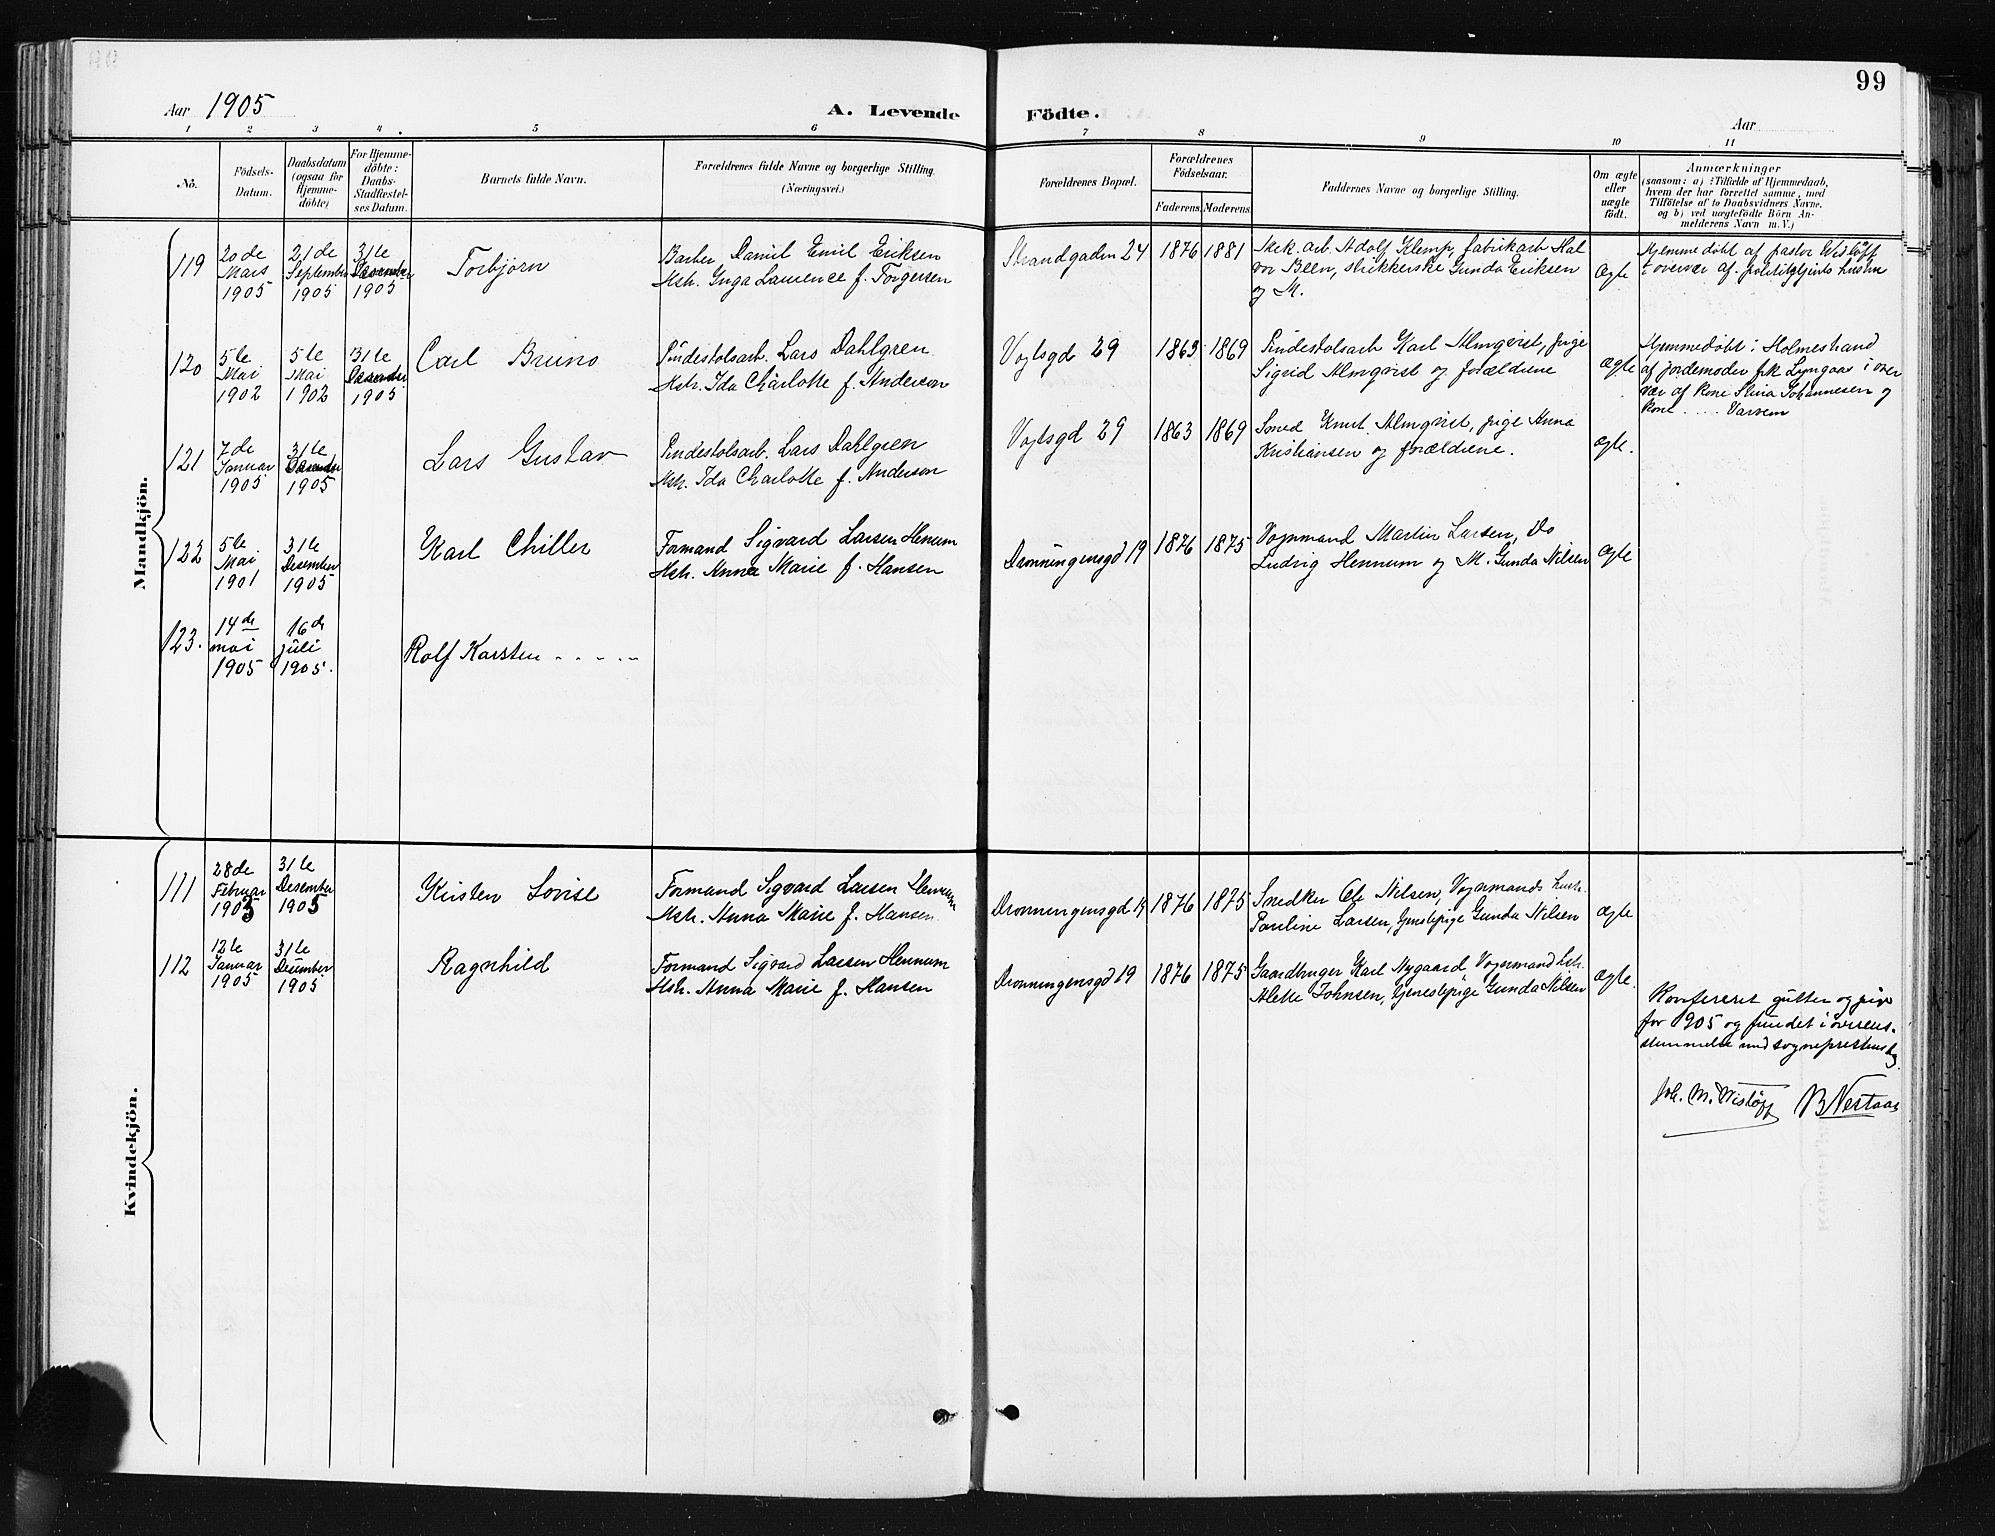 99
Aar 1905
A. Levende Födte.
Aar
1 2 3 4 5 6 7 8 9 10 11
No.
Födsels-
Datum.
Daabsdatum
(ogsaa for
Hjemme-
döbte)
For Hjemme-
döbte:
Daabs-
Stadfæstel-
ses Datum.
Barnets fulde Navn.
Forældrenes fulde Navne og borgerlige Stilling.
(Næringsvei.)
Forældrenes Bopæl.
Forældrenes
Födselsaar.
Faderens.
Moderens.
Faddernes Navne og borgerlige Stilling.
Om ægte
eller
uægte
födt.
Anmærkninger
(saasom: a) i Tilfælde af Hjemmedaab,
hvem der har forrettet samme, med
Tilföielse af to Daabsvidners Navne,
og b) ved uægtefödte Börn An-
melderens Navn m. V.)
Mandkjön.
119
20de
Mars
1905
21de
September
1905
31te
Desember
1905
Torbjørn
Barber Daniel Emil Eriksen
Hstr. Inga Laurence f. Torgersen
Strandgaden 24
1876
1881
Mek. arb. Adolf Klemp, fabrikarb. Hal
vor Been, strikkerske Gunda Eriksen
og M.
ægte
Hjemmedøbt af pastor Wisløff
i overvær af
hustru
120
5te
Mai
1902
5te
Mai
1902
31te
Desember
1905
Carl Bruno
Pindestolsarb. Lars Dahlgren
Hstr. Ida Charlotte f. Anderson
Vogtsgd 29
1863
1869
Pindestolsarb Karl Almqvist, pige
Sigrid Almqvist og forældrene
ægte
Hjemmedøbt i Holmestrand
af jordemoder frk Lyngaas i over
vær af kone Stina Johannesen og
kone .... Varvem
121
7de
Januar
1905
31te
Desember
1905
Lars Gustav
Pindestolsarb. Lars Dahlgren
Hstr. Ida Charlotte f. Anderson
Vogtsgd 29
1863
1869
Smed Knut Almqvist, pige Anna
Kristiansen og forældrene.
ægte.
122
5te
Mai
1901
31te
Desember
1905
Karl Chiller
Formand Sigvard Larsen Henum
Hstr. Anna Marie f. Hansen
Dronningensgd 19
1876
1875
Vognmand Martin Larsen, Do
Ludvig Hennum og M. Gunda Nilsen
ægte
123.
14de
mai
1905
16de
juli
1905.
Rolf Karsten - - - - -
Kvindekjön.
111
28de
Februar
1903
31te
Desember
1905
Kirsten Lovise
Formand Sigvard Larsen Hennum
Hstr. Anna Marie f. Hansen
Dronningensgd 19
1876
1875
Snedker Ole Nilsen, Vognmands hustr.
Pauline Larsen, tjenestepige Gunda Nilsen
ægte
112
12te
Januar
1905
31te
Desember
1905
Ragnhild
Formand Sigvard Larsen Hennum
Hstr. Anna Marie f. Hansen
Dronningensgd 19
1876
1875
Gaardbruger Karl Nygaard, Vognmand hstr.
Alette Johnsen, tjenestepige Gunda Nilsen
ægte.
Konfereret gutter og piger
for 1905 og fundet i overens-
stemmelse med sogneprestens bog
Joh. M. Wisløff B Nestaas